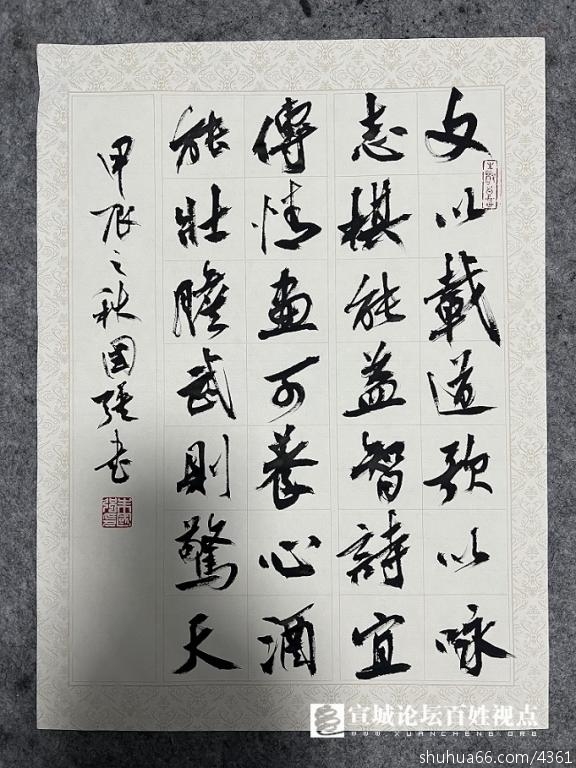 文以載道歌以咏
志棋能益智詩宜
傳情畫可養心酒
能壯膽武則驚天
甲辰之秋國强書
宣城论坛百姓视点
WWW.XUANCHENG.ORG
shuhua66.com/4361